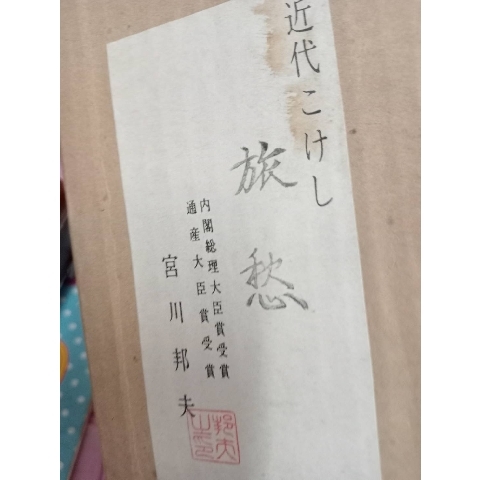 近代こけし
旅愁
内閣総理大臣賞受賞
通産大臣賞受賞
宮川邦夫